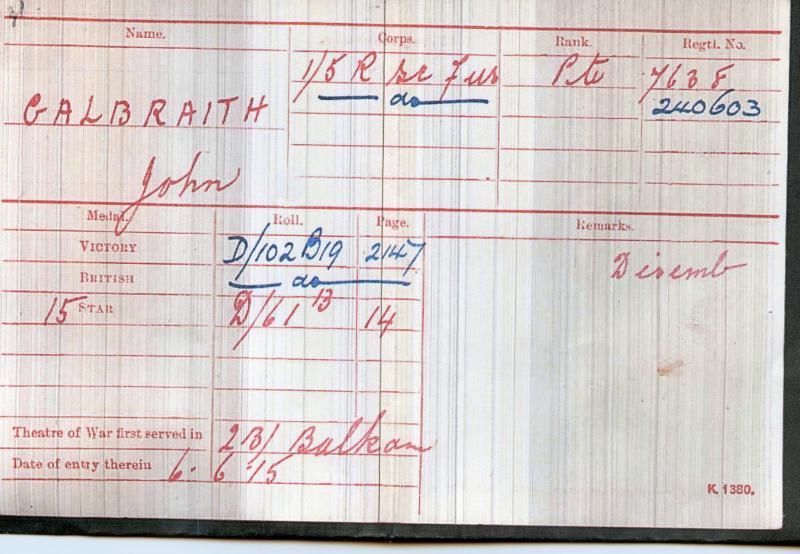 Name. Corps. Rank. Regtl. No.
GALBRAITH 1/5 R Sc Fus Pte 7638
do 240603
John
Medal. Roll. Page. Remarks.
VICTORY D/102 B19 2147 Disemb
BRITISH do
15 STAR D/61 13 14
Theatre of War first served in 2B/ Balkan
Date of entry therein 6. 6 15
K. 1380.